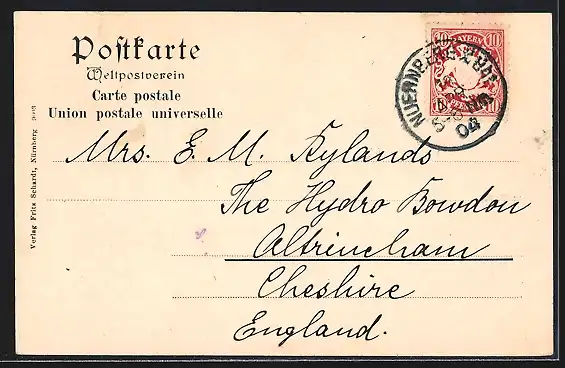 Postkarte
Weltpostverein
Carte postale
Union postale universelle
10 BAYERN 10
NUERNBERG
04
Mrs. E. M. Rylands
The Hydro Bowdon
Altrincham
Cheshire
England.
Verlag Fritz Schardt, Nürnberg